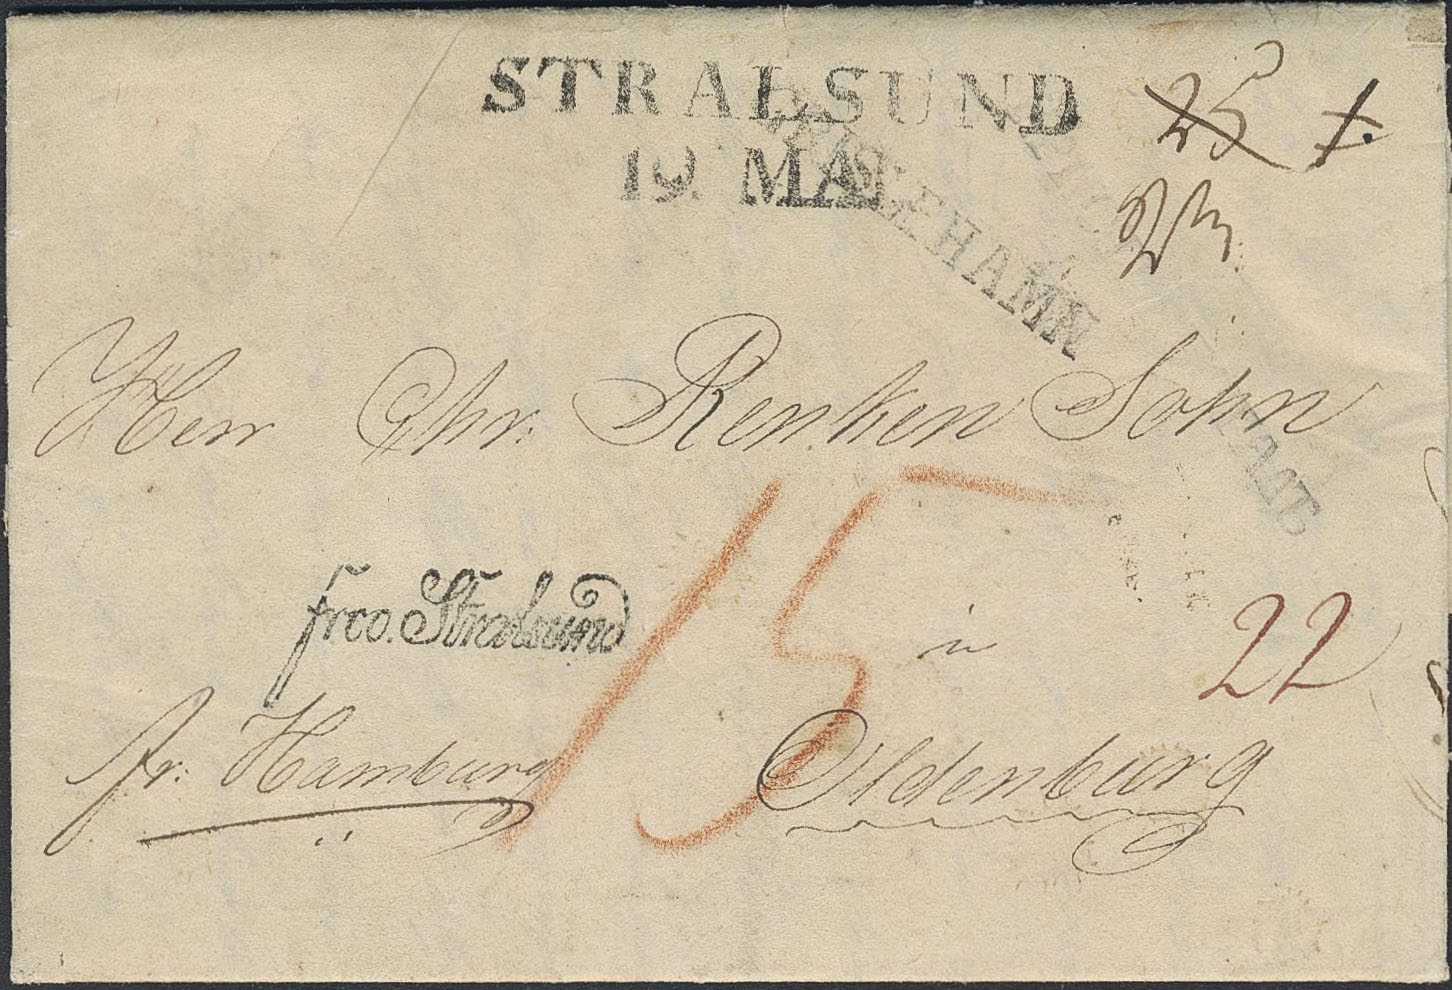 STRALSUND
19. MAI
25
Herr Chr. Renken Sohn
frco. Stralsund
15
in
22
fr. Hamburg
Oldenburg